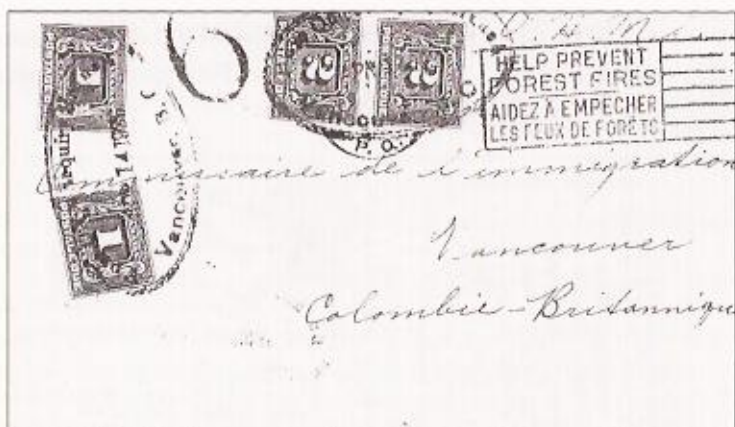 O.H.M.S.
6
HELP PREVENT
FOREST FIRES
AIDEZ À EMPECHER
LES FEUX DE FORÊTS
1
2
2
Vancouver, B.C.
P.O.
1
Commissaire de l'immigration
Vancouver
Colombie-Britannique